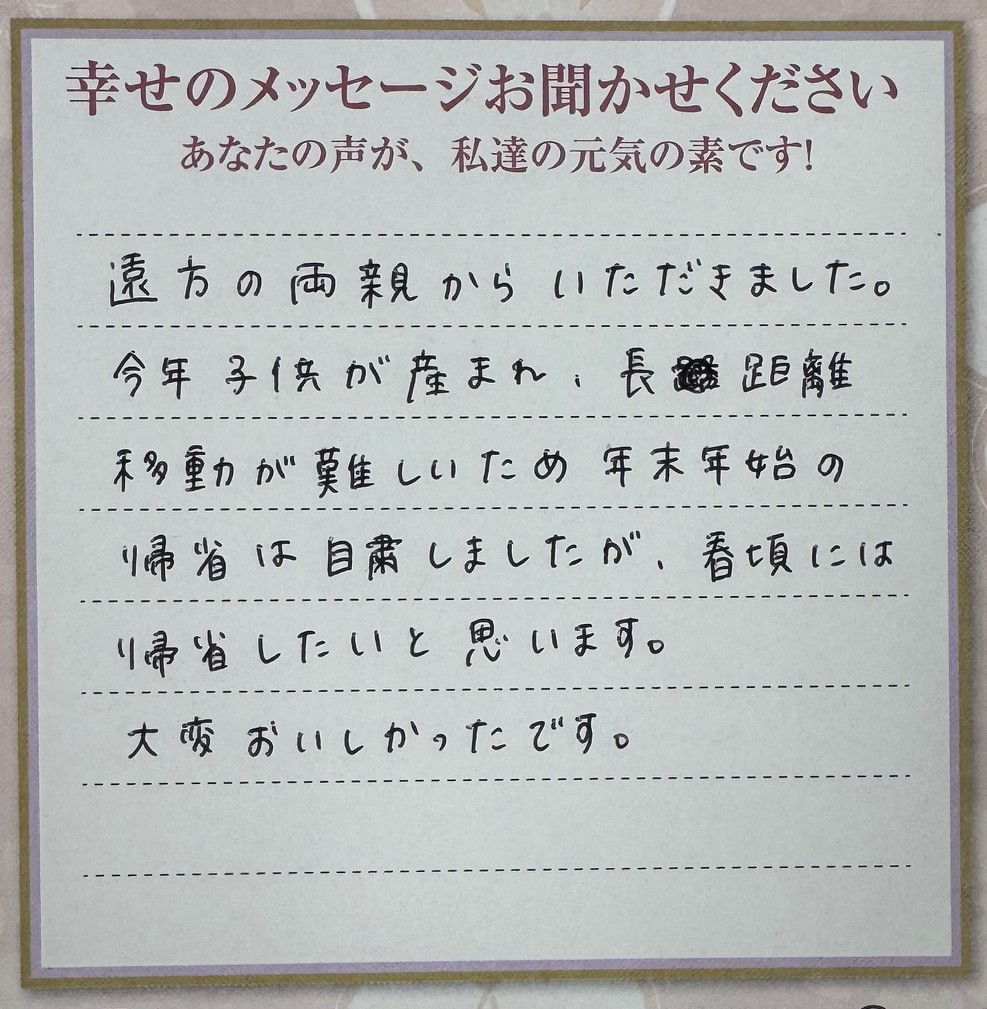 幸せのメッセージお聞かせください
あなたの声が、私達の元気の素です!
遠方の両親からいただきました。
今年子供が産まれ、長距離
移動が難しいため年末年始の
帰省は自粛しましたが、春頃には
帰省したいと思います。
大変おいしかったです。